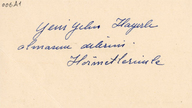 006A1
Yeni Yılın Hayırlı
olmasını dilerim
Hürmetlerimle